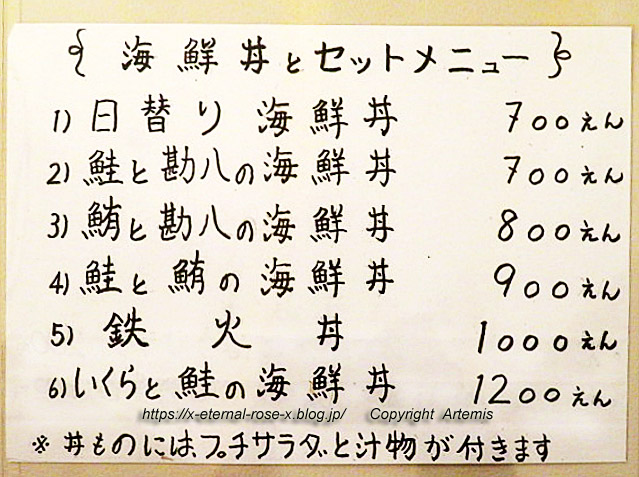 { 海鮮丼とセットメニュー }
1) 日替り海鮮丼 700えん
2) 鮭と勘八の海鮮丼 700えん
3) 鮪と勘八の海鮮丼 800えん
4) 鮭と鮪の海鮮丼 900えん
5) 鉄火丼 1000えん
6) いくらと鮭の海鮮丼 1200えん
https://x-eternal-rose-x.blog.jp/ Copyright Artemis
※丼ものには、プチサラダと汁物が付きます